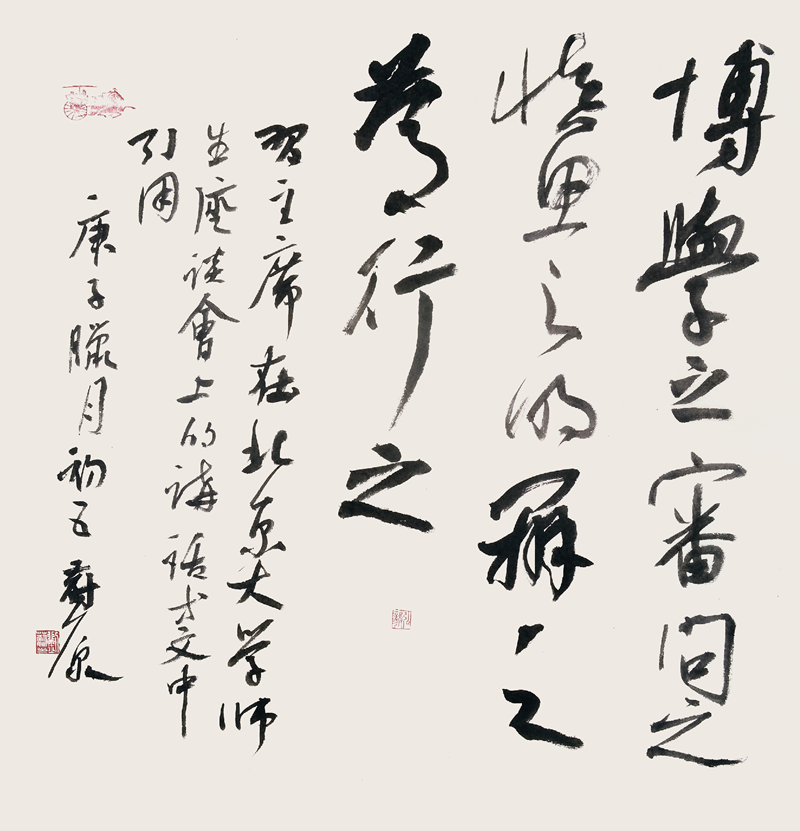 博學之審問之
慎思之明辨之
篤行之
習主席在北京大学师
生座谈會上的講话古文中
引用
庚子臘月初五